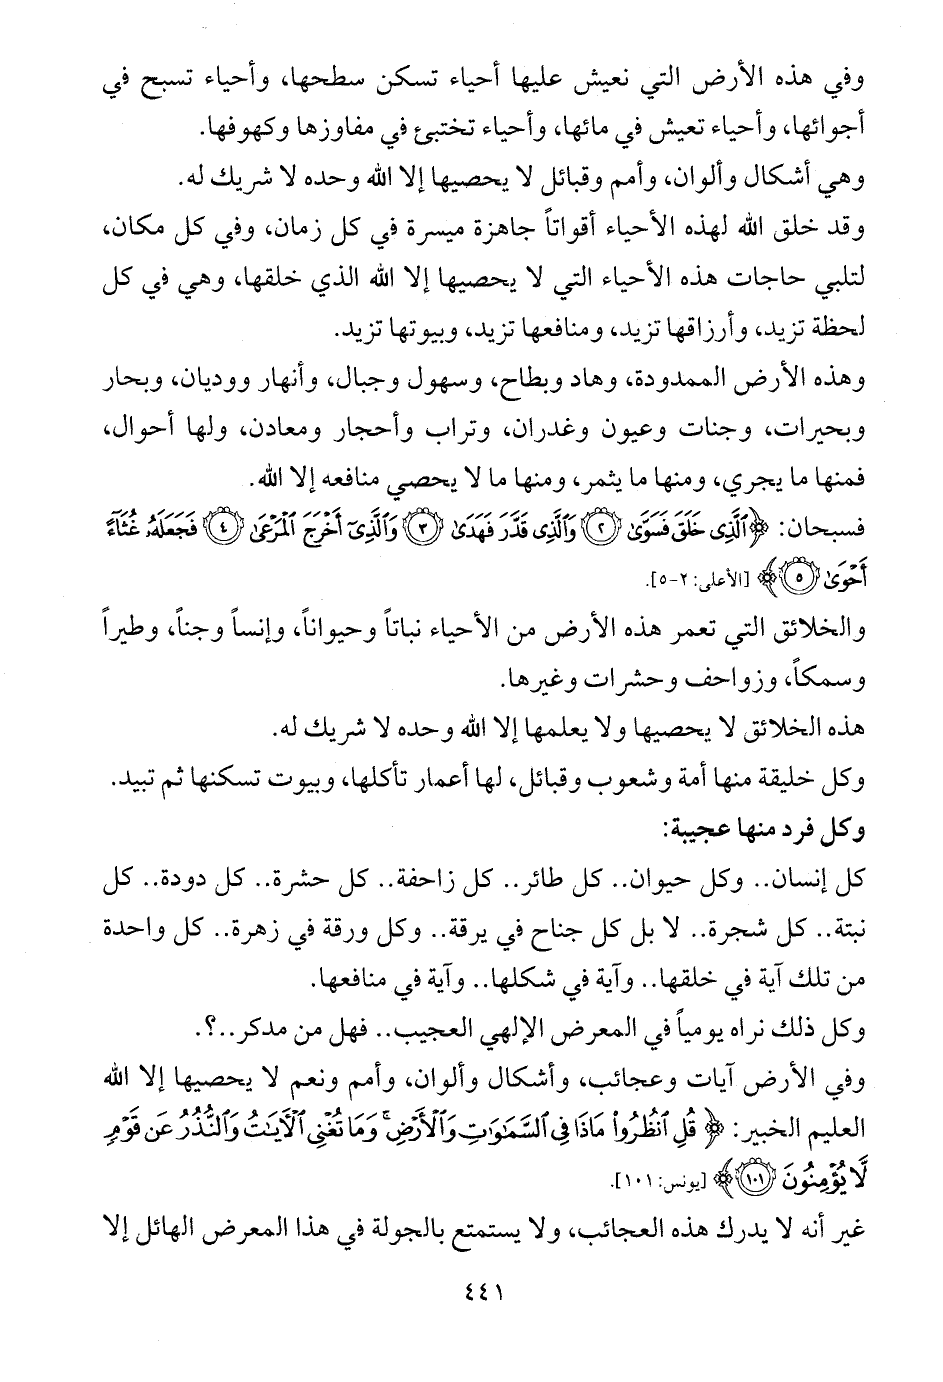 وفي هذه الأرض التي نعيش عليها أحياء تسكن سطحها، وأحياء تسبح في
أجوائها، وأحياء تعيش في مائها، وأحياء تختبئ في مفاوزها وكهوفها.
وهي أشكال وألوان، وأمم وقبائل لا يحصيها إلا الله وحده لا شريك له.
وقد خلق الله لهذه الأحياء أقواتاً جاهزة ميسرة في كل زمان، وفي كل مكان،
لتلبي حاجات هذه الأحياء التي لا يحصيها إلا الله الذي خلقها، وهي في كل
لحظة تزيد، وأرزاقها تزيد، ومنافعها تزيد، وبيوتها تزيد.
وهذه الأرض الممدودة، وهاد وبطاح، وسهول وجبال، وأنهار ووديان، وبحار
وبحيرات، وجنات وعيون وغدران، وتراب وأحجار ومعادن، ولها أحوال،
فمنها ما يجري، ومنها ما يثمر، ومنها ما لا يحصي منافعه إلا الله.
فسبحان: ﴿ٱلَّذِى خَلَقَ فَسَوَّىٰ ٢ وَٱلَّذِى قَدَّرَ فَهَدَىٰ ٣ وَٱلَّذِىٓ أَخْرَجَ ٱلْمَرْعَىٰ ٤ فَجَعَلَهُۥ غُثَآءً
أَحْوَىٰ ٥﴾ [الأعلى: ٢-٥].
والخلائق التي تعمر هذه الأرض من الأحياء نباتاً وحيواناً، وإنساً وجناً، وطيراً
وسمكاً، وزواحف وحشرات وغيرها.
هذه الخلائق لا يحصيها ولا يعلمها إلا الله وحده لا شريك له.
وكل خليقة منها أمة وشعوب وقبائل، لها أعمار تأكلها، وبيوت تسكنها ثم تبيد.
وكل فرد منها عجيبة:
كل إنسان.. وكل حيوان.. كل طائر.. كل زاحفة.. كل حشرة.. كل دودة.. كل
نبتة.. كل شجرة.. لا بل كل جناح في يرقة.. وكل ورقة في زهرة.. كل واحدة
من تلك آية في خلقها.. وآية في شكلها.. وآية في منافعها.
وكل ذلك نراه يومياً في المعرض الإلهي العجيب.. فهل من مدكر..؟.
وفي الأرض آيات وعجائب، وأشكال وألوان، وأمم ونعم لا يحصيها إلا الله
العليم الخبير: ﴿قُلِ ٱنظُرُوا۟ مَاذَا فِى ٱلسَّمَٰوَٰتِ وَٱلْأَرْضِ ۚ وَمَا تُغْنِى ٱلْءَايَٰتُ وَٱلنُّذُرُ عَن قَوْمٍ
لَّا يُؤْمِنُونَ ١٠١﴾ [يونس: ١٠١].
غير أنه لا يدرك هذه العجائب، ولا يستمتع بالجولة في هذا المعرض الهائل إلا
٤٤١